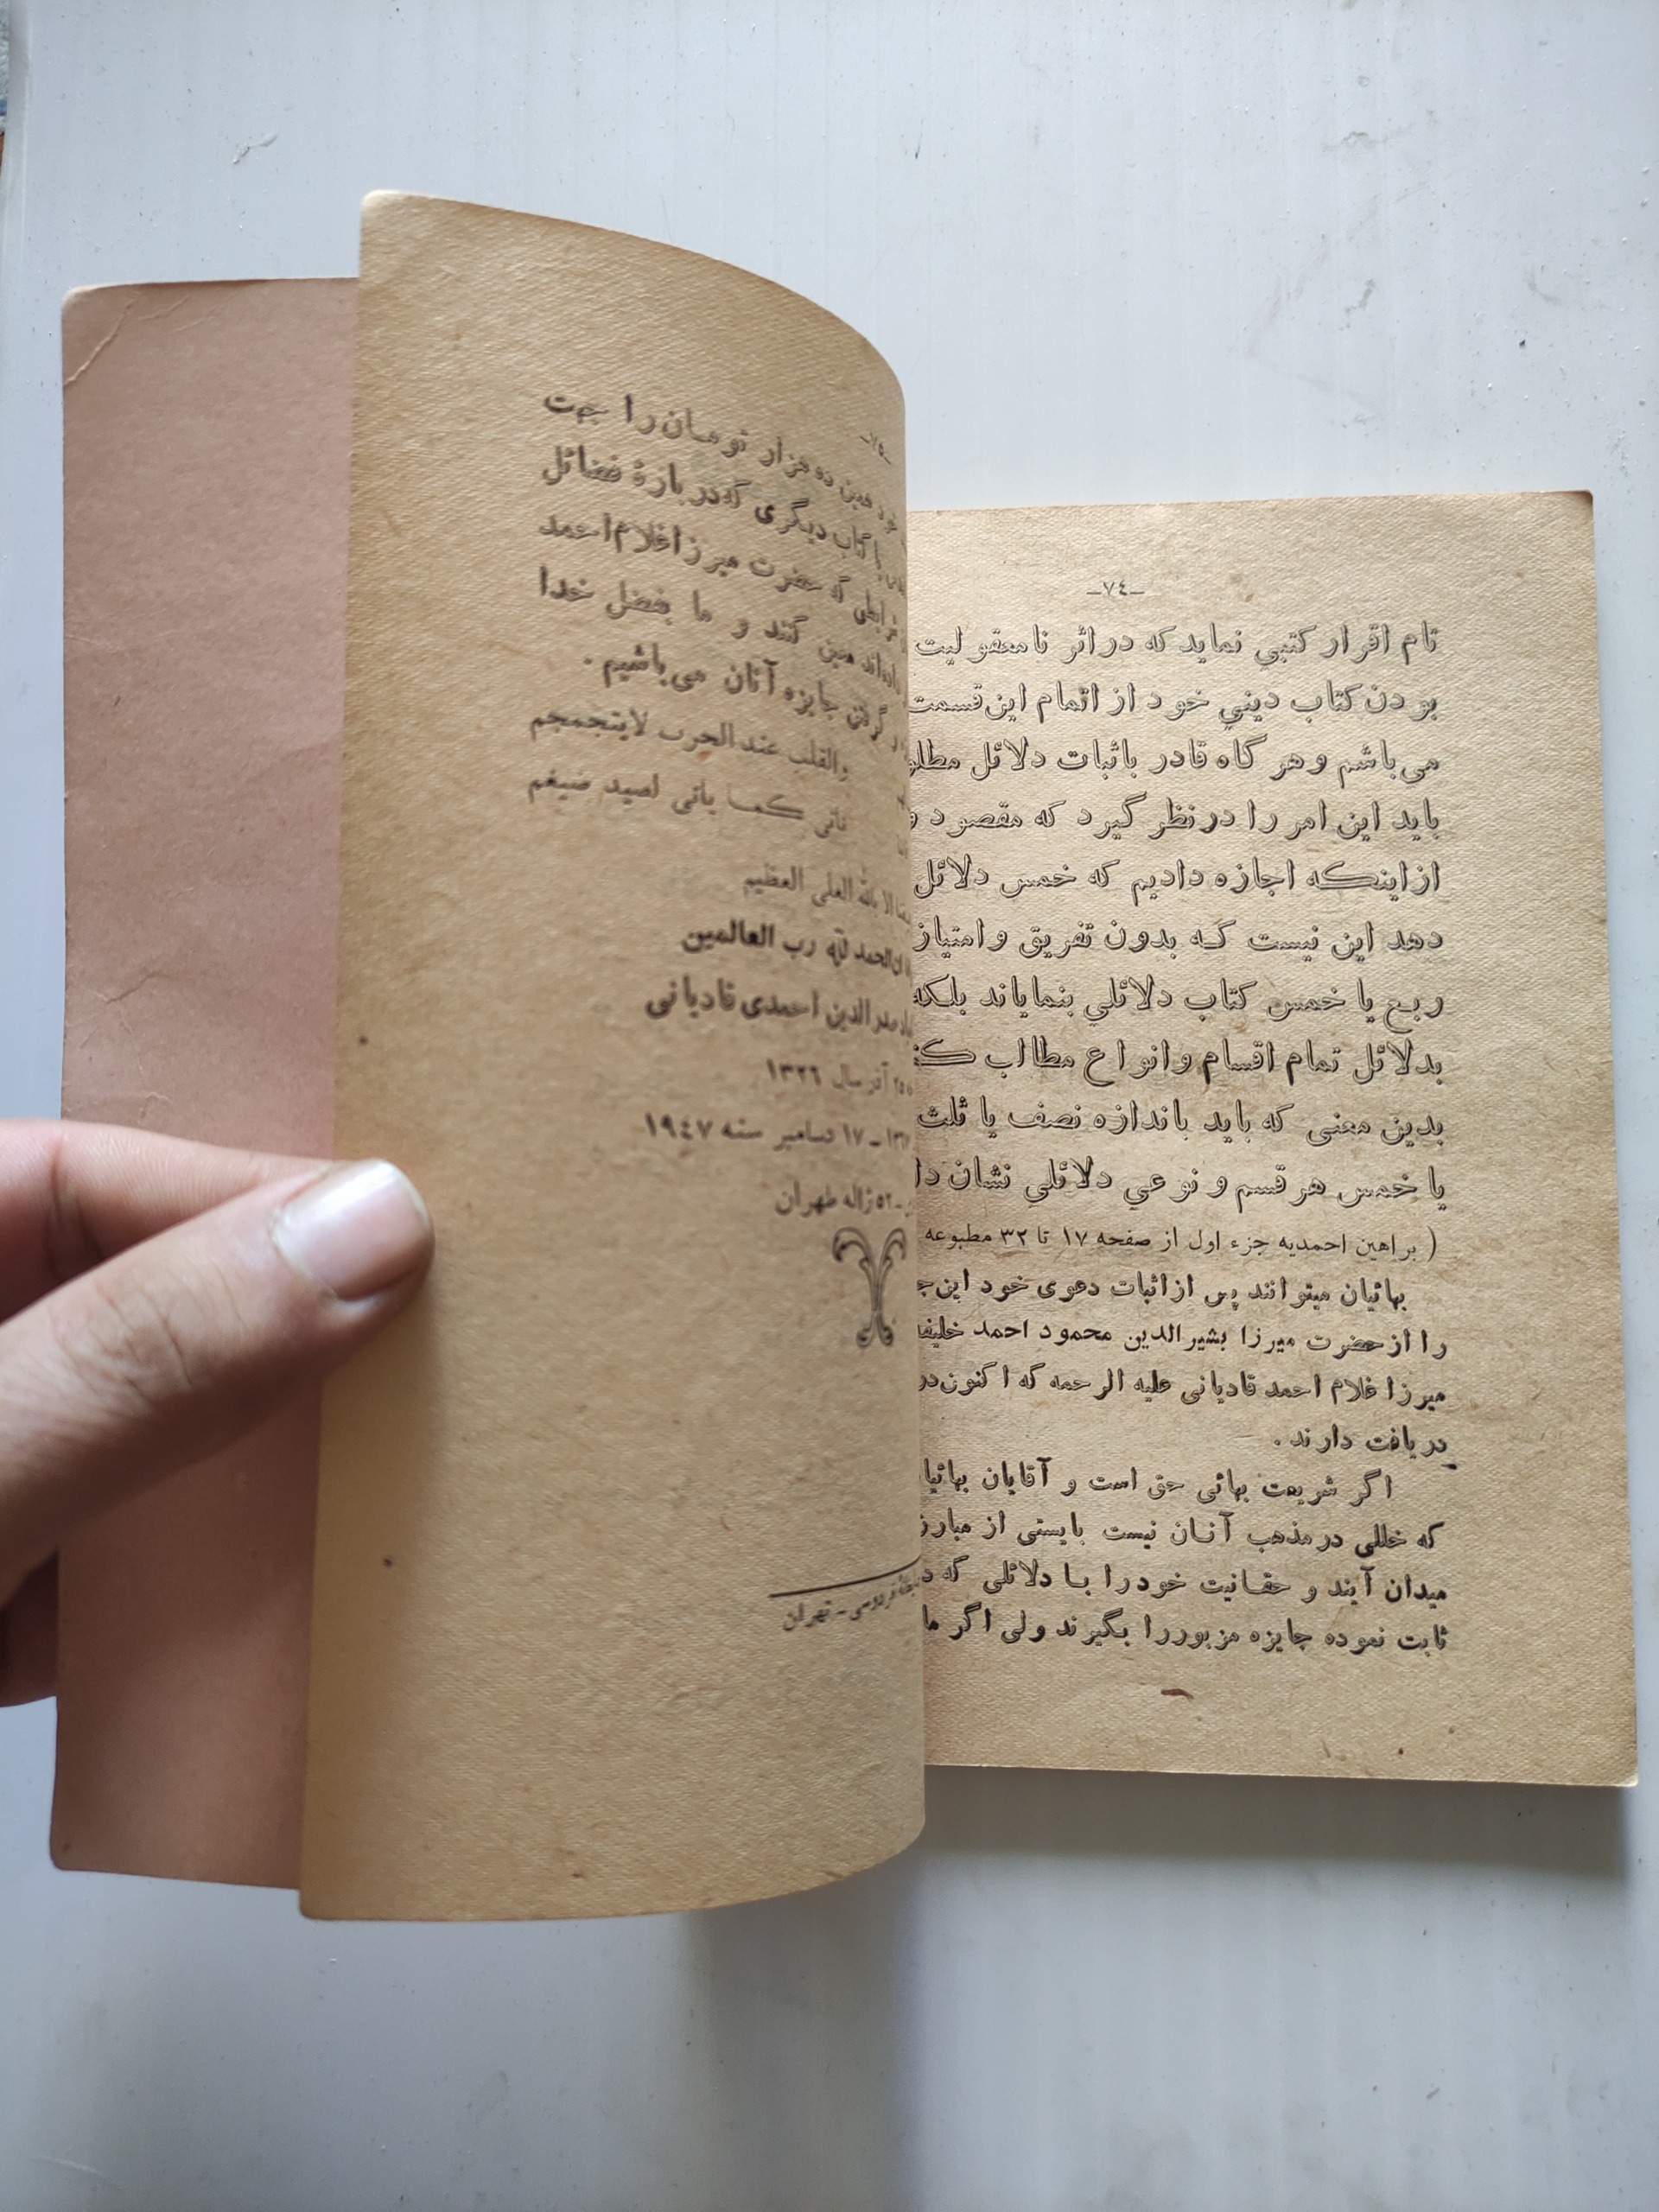 -٧٤-
تام اقرار کتبي نماید که در اثر نامعقولیت
بودن کتاب دیني خود از اتمام این قسمت
می‌باشم و هر گاه قادر باثبات دلائل
باید این امر را در نظر گیرد که مقصود
از اینکه اجازه دادیم که خمس دلائل
دهد این نیست که بدون تفریق و امتیاز
ربع یا خمس کتاب دلائلي بنمایاند بلکه
بدلائل تمام اقسام و انواع مطالب
بدین معنی که باید باندازه نصف یا ثلث
یا خمس هر قسم و نوعي دلائلي نشان
( براهین احمدیه جزء اول از صفحه ١٧ تا ٣٢ مطبوعه
بهائیان میتوانند پس از اثبات دعوی خود این
را از حضرت میرزا بشیرالدین محمود احمد
میرزا غلام احمد قادیانی علیه الرحمه که اکنون در
دریافت دارند .
اگر شریعت بهائی حق است و آقایان
که خللی در مذهب آنان نیست بایستی از
میدان آیند و حقانیت خود را با دلائلی که
ثابت نموده جایزه مزبور را بگیرند ولی اگر ما
-٧٥-
همین ده هزار تومان را جهت
یا کتاب دیگری که در بارهٔ فضائل
که حضرت میرزا غلام احمد
معین کنند و ما بفضل خدا
گرفتن جایزه آنان می‌باشیم .
والقلب عند الحرب لایتجمجم
ناتی کما یاتی لصید ضیغم
الا بالله العلی العظیم
ان الحمد لله رب العالمین
صدرالدین احمدی قادیانی
٢٥ آذر سال ١٣٢٦
- ١٧ دسامبر سنه ١٩٤٧
- ٥٢ ژاله طهران
فردوسی - تهران